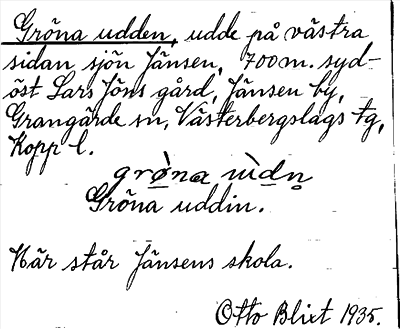 Gröna udden, udde på västra
sidan sjön Jänsen, 700 m. syd-
öst Lars Jöns gård, Jänsen by,
Grangärde sn, Västerbergslags tg,
Kopp l.
grø̀na ùdn̥
Gröna uddin.
Här står Jänsens skola.
Otto Blixt 1935.